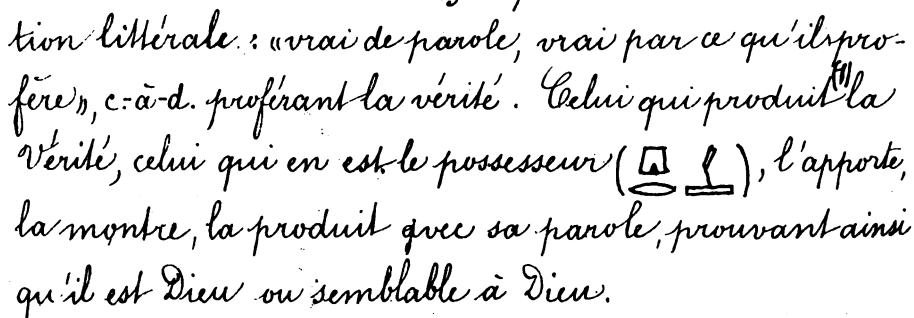 tion littérale : «vrai de parole, vrai par ce qu'il pro-
fère», c.-à-d. proférant la vérité. Celui qui produit (1) la
Vérité, celui qui en est le possesseur ( ), l'apporte,
la montre, la produit avec sa parole, prouvant ainsi
qu'il est Dieu ou semblable à Dieu.